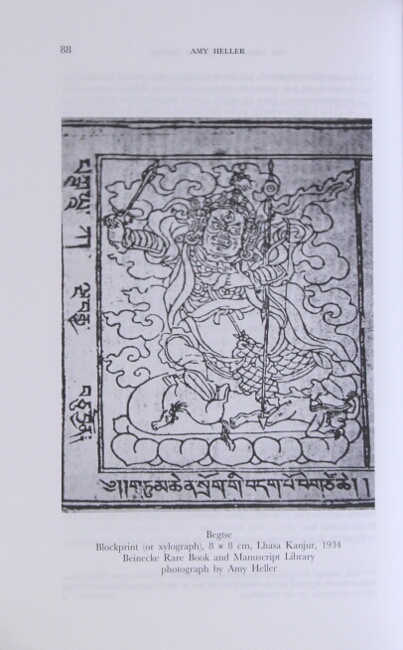 88
AMY HELLER
༄།།གཏུམ་ཆེན་སྲོག་གི་བདག་པོ་
Begtse
Blockprint (or xylograph), 8 × 8 cm, Lhasa Kanjur, 1934
Beinecke Rare Book and Manuscript Library
photograph by Amy Heller